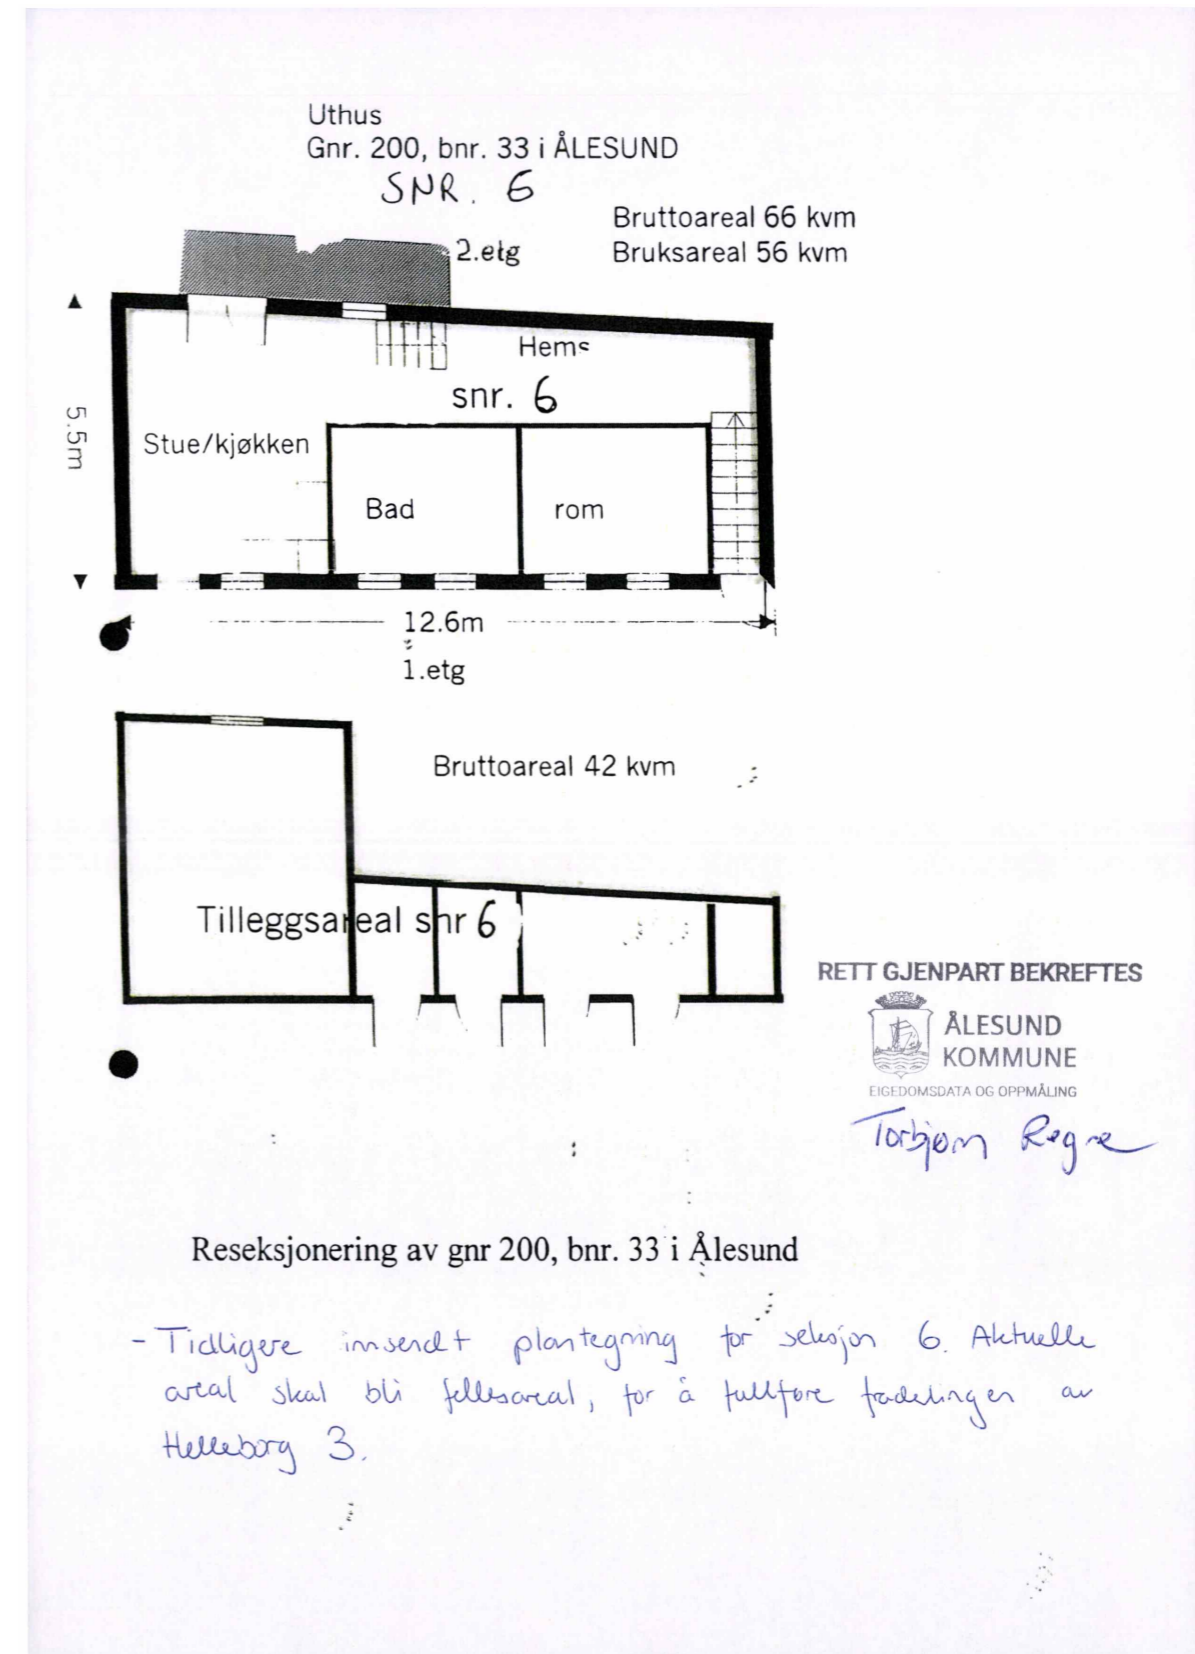 Uthus
Gnr. 200, bnr. 33 i ÅLESUND
SNR. 6
Bruttoareal 66 kvm
2.etg
Bruksareal 56 kvm
Hems
snr. 6
5.5m
Stue/kjøkken
Bad
rom
12.6m
1.etg
Bruttoareal 42 kvm
Tilleggsareal snr 6
RETT GJENPART BEKREFTES
ÅLESUND
KOMMUNE
EIGEDOMSDATA OG OPPMÅLING
Torbjørn Regne
Reseksjonering av gnr 200, bnr. 33 i Ålesund
- Tidligere innsendt plantegning for seksjon 6. Aktuelle
areal skal bli fellesareal, for å fullføre fradelingen av
Helleborg 3.